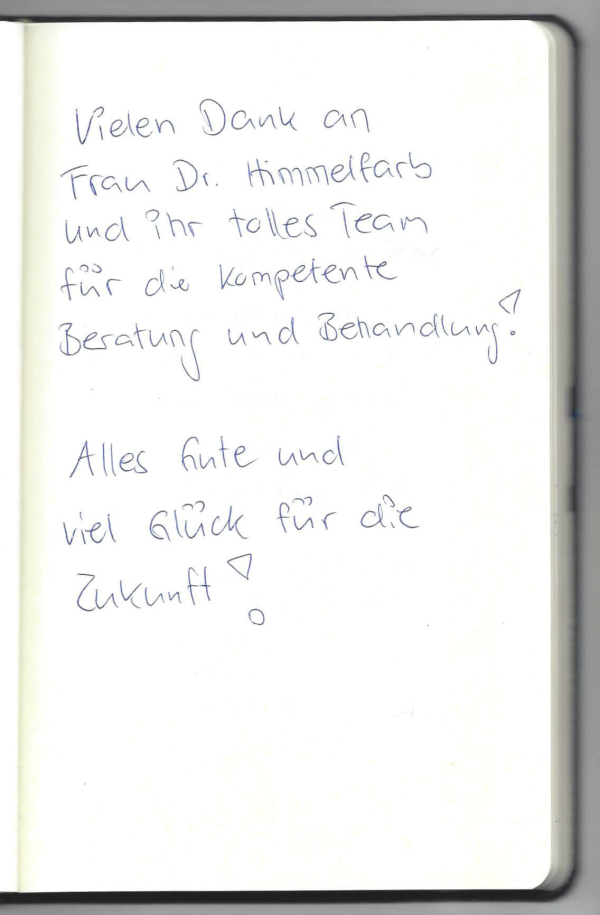 Vielen Dank an
Frau Dr. Himmelfarb
und ihr tolles Team
für die kompetente
Beratung und Behandlung!
Alles Gute und
viel Glück für die
Zukunft!